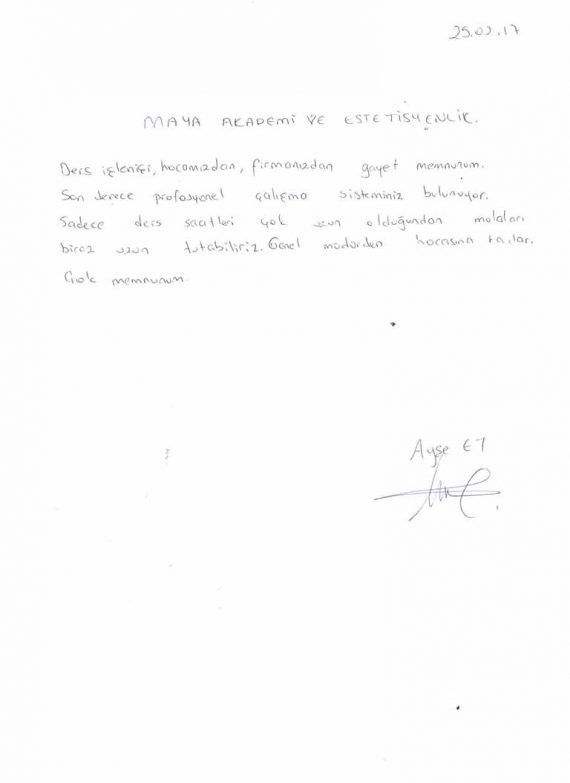 25.02.17
MAYA AKADEMİ VE ESTETİSYENLİK.
Ders işlenişi, hocamızdan, firmanızdan gayet memnunum.
Son derece profosyonel çalışma sisteminiz bulunuyor.
Sadece ders saatleri çok uzun olduğundan molaları
biraz uzun tutabiliriz. Genel müdürden hocasına kadar.
Çok memnunum.
Ayşe